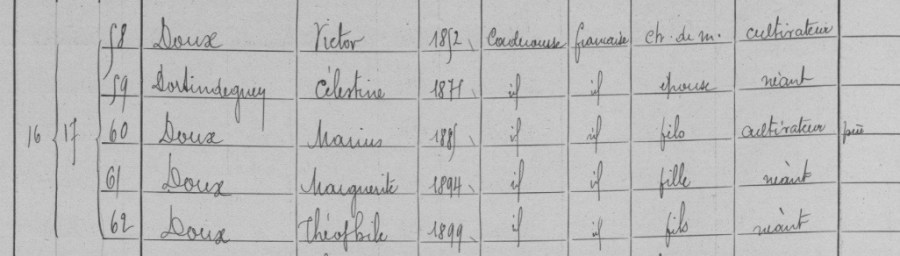 58 Doux Victor 1852 française ch. de m. cultivateur
59 Célestine 1871 id id épouse néant
16 17 60 Doux Marius 1885 id id fils cultivateur
61 Doux Marguerite 1894 id id fille néant
62 Doux Théophile 1899 id id fils néant